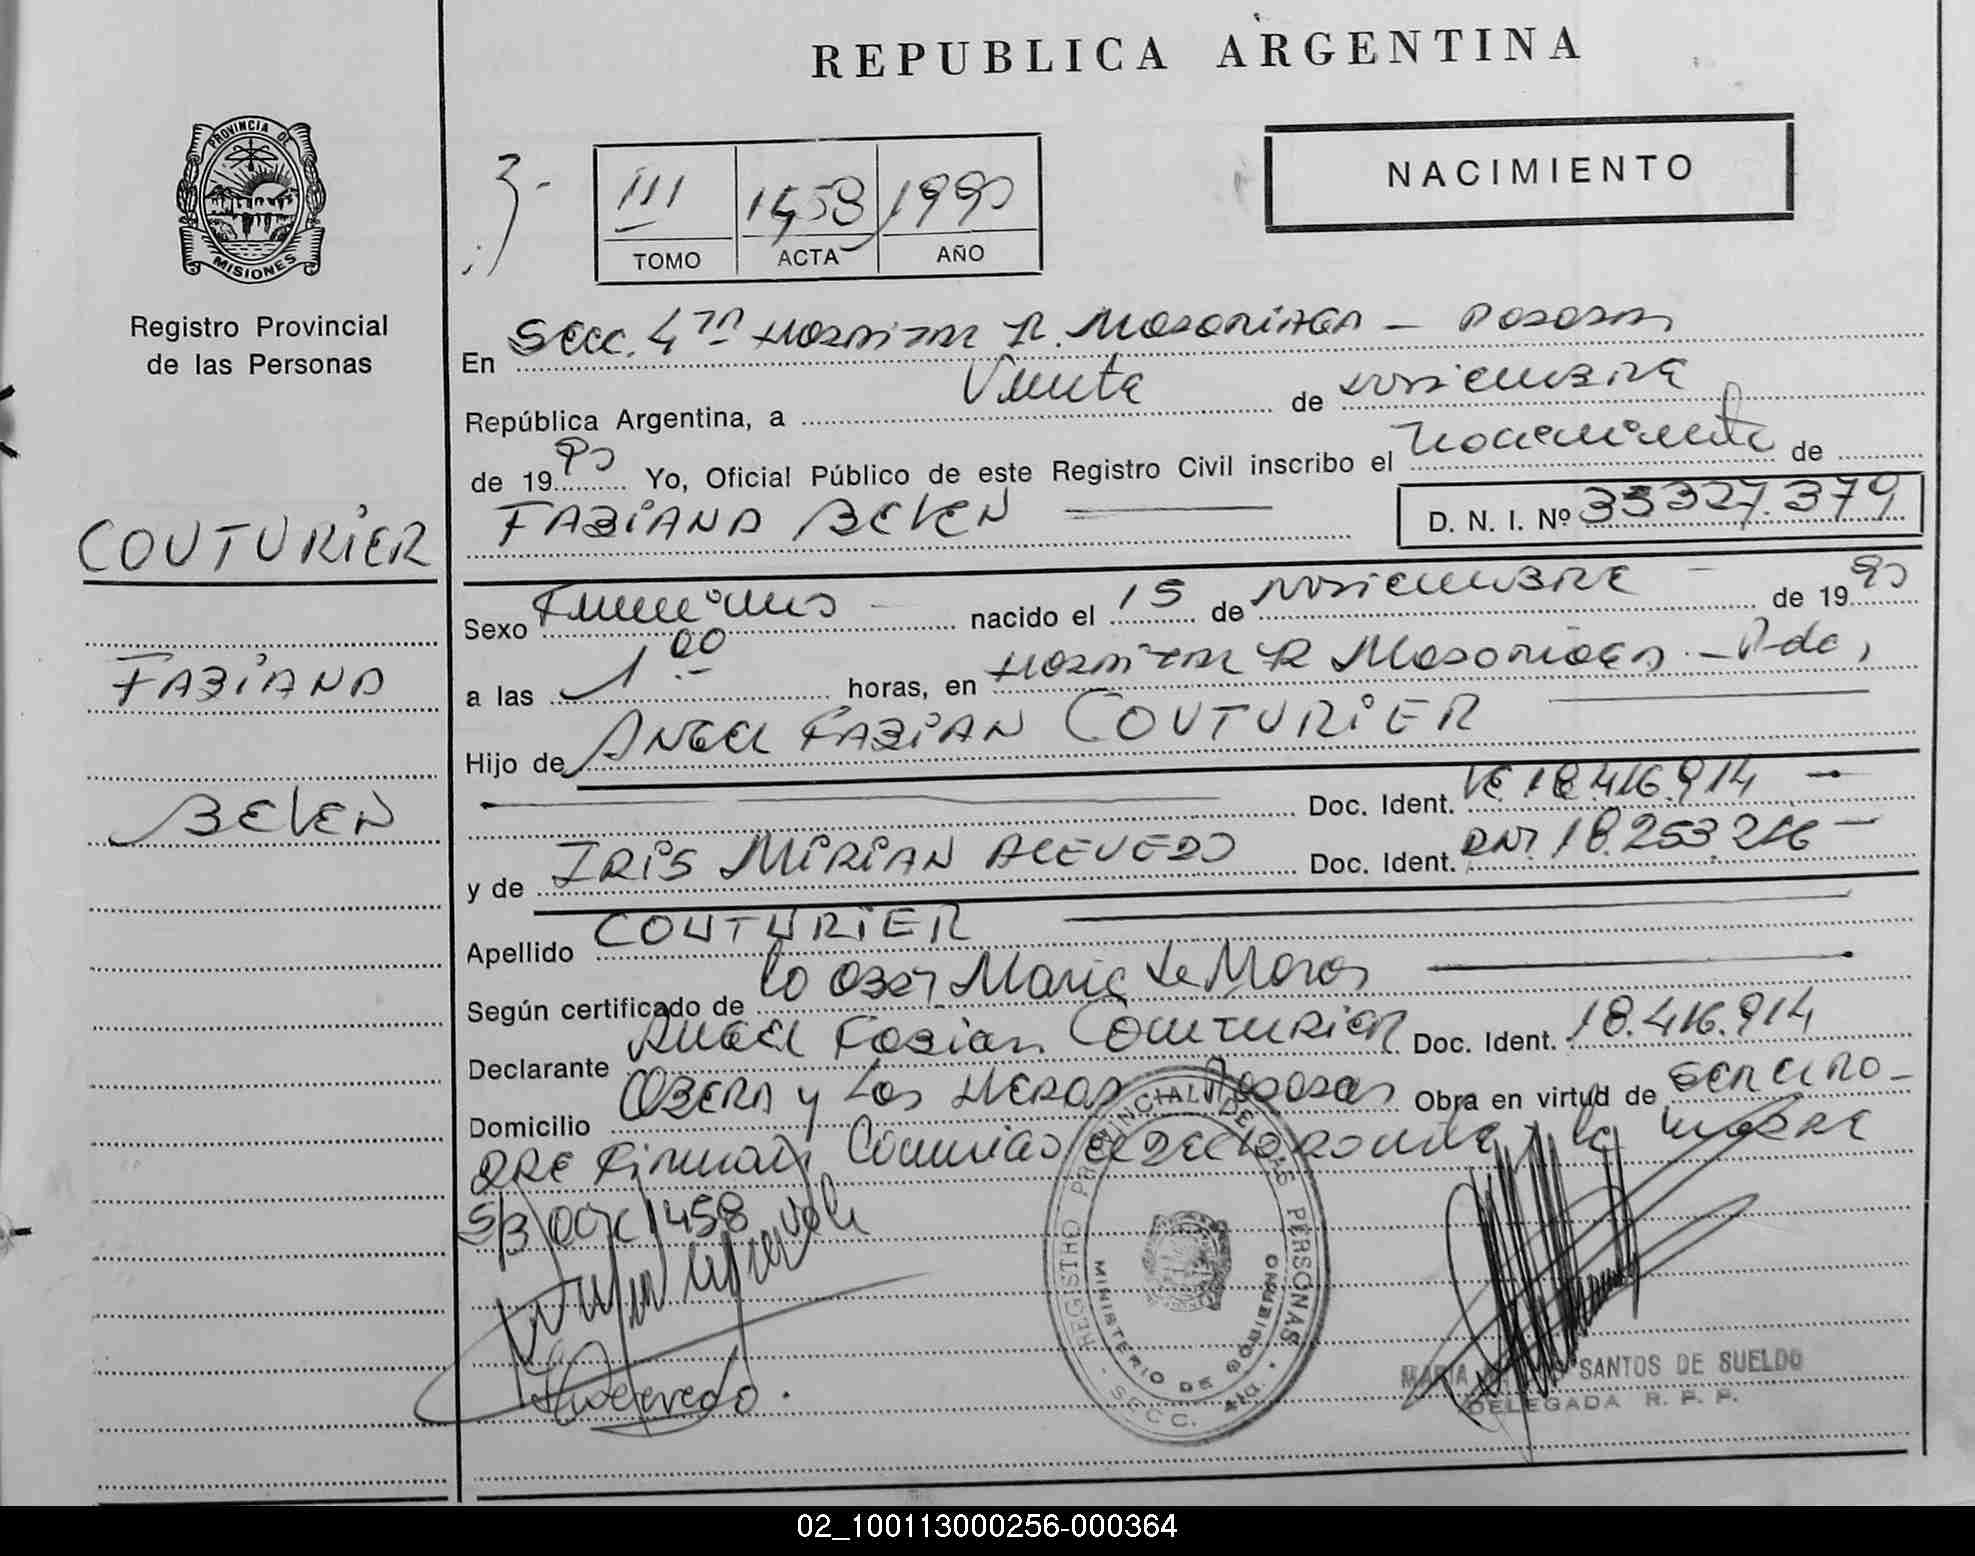 REPUBLICA ARGENTINA
PROVINCIA DE
MISIONES
Registro Provincial
de las Personas
NACIMIENTO
3-
III 1458 1990
TOMO ACTA AÑO
En Secc. 4ta Hospital R. Madariaga - Posadas
República Argentina, a Veinte de noviembre
de 1990 Yo, Oficial Público de este Registro Civil inscribo el nacimiento de
FABIANA BELEN D. N. I. Nº 35327.379
COUTURIER
FABIANA
BELEN
Sexo Femenino nacido el 15 de noviembre de 1990
a las 1 00 horas, en Hospital R Madariaga - Pdas
Hijo de ANGEL FABIAN COUTURIER
Doc. Ident. 18.416.914
y de IRIS MIRIAN ACEVEDO Doc. Ident. DNI 18.253.216
Apellido COUTURIER
Según certificado de la Obst Maria de Moros
Declarante Angel Fabian Couturier Doc. Ident. 18.416.914
Domicilio OBERA y Los Heros Posadas Obra en virtud de ser el
padre firman conmigo el declarante y la madre
S/B 1458 vale
REGISTRO PROVINCIAL DE LAS PERSONAS
MINISTERIO DE GOBIERNO
SECC. 4ta.
MARIA SANTOS DE SUELDO
DELEGADA R. P. P.
02_100113000256-000364